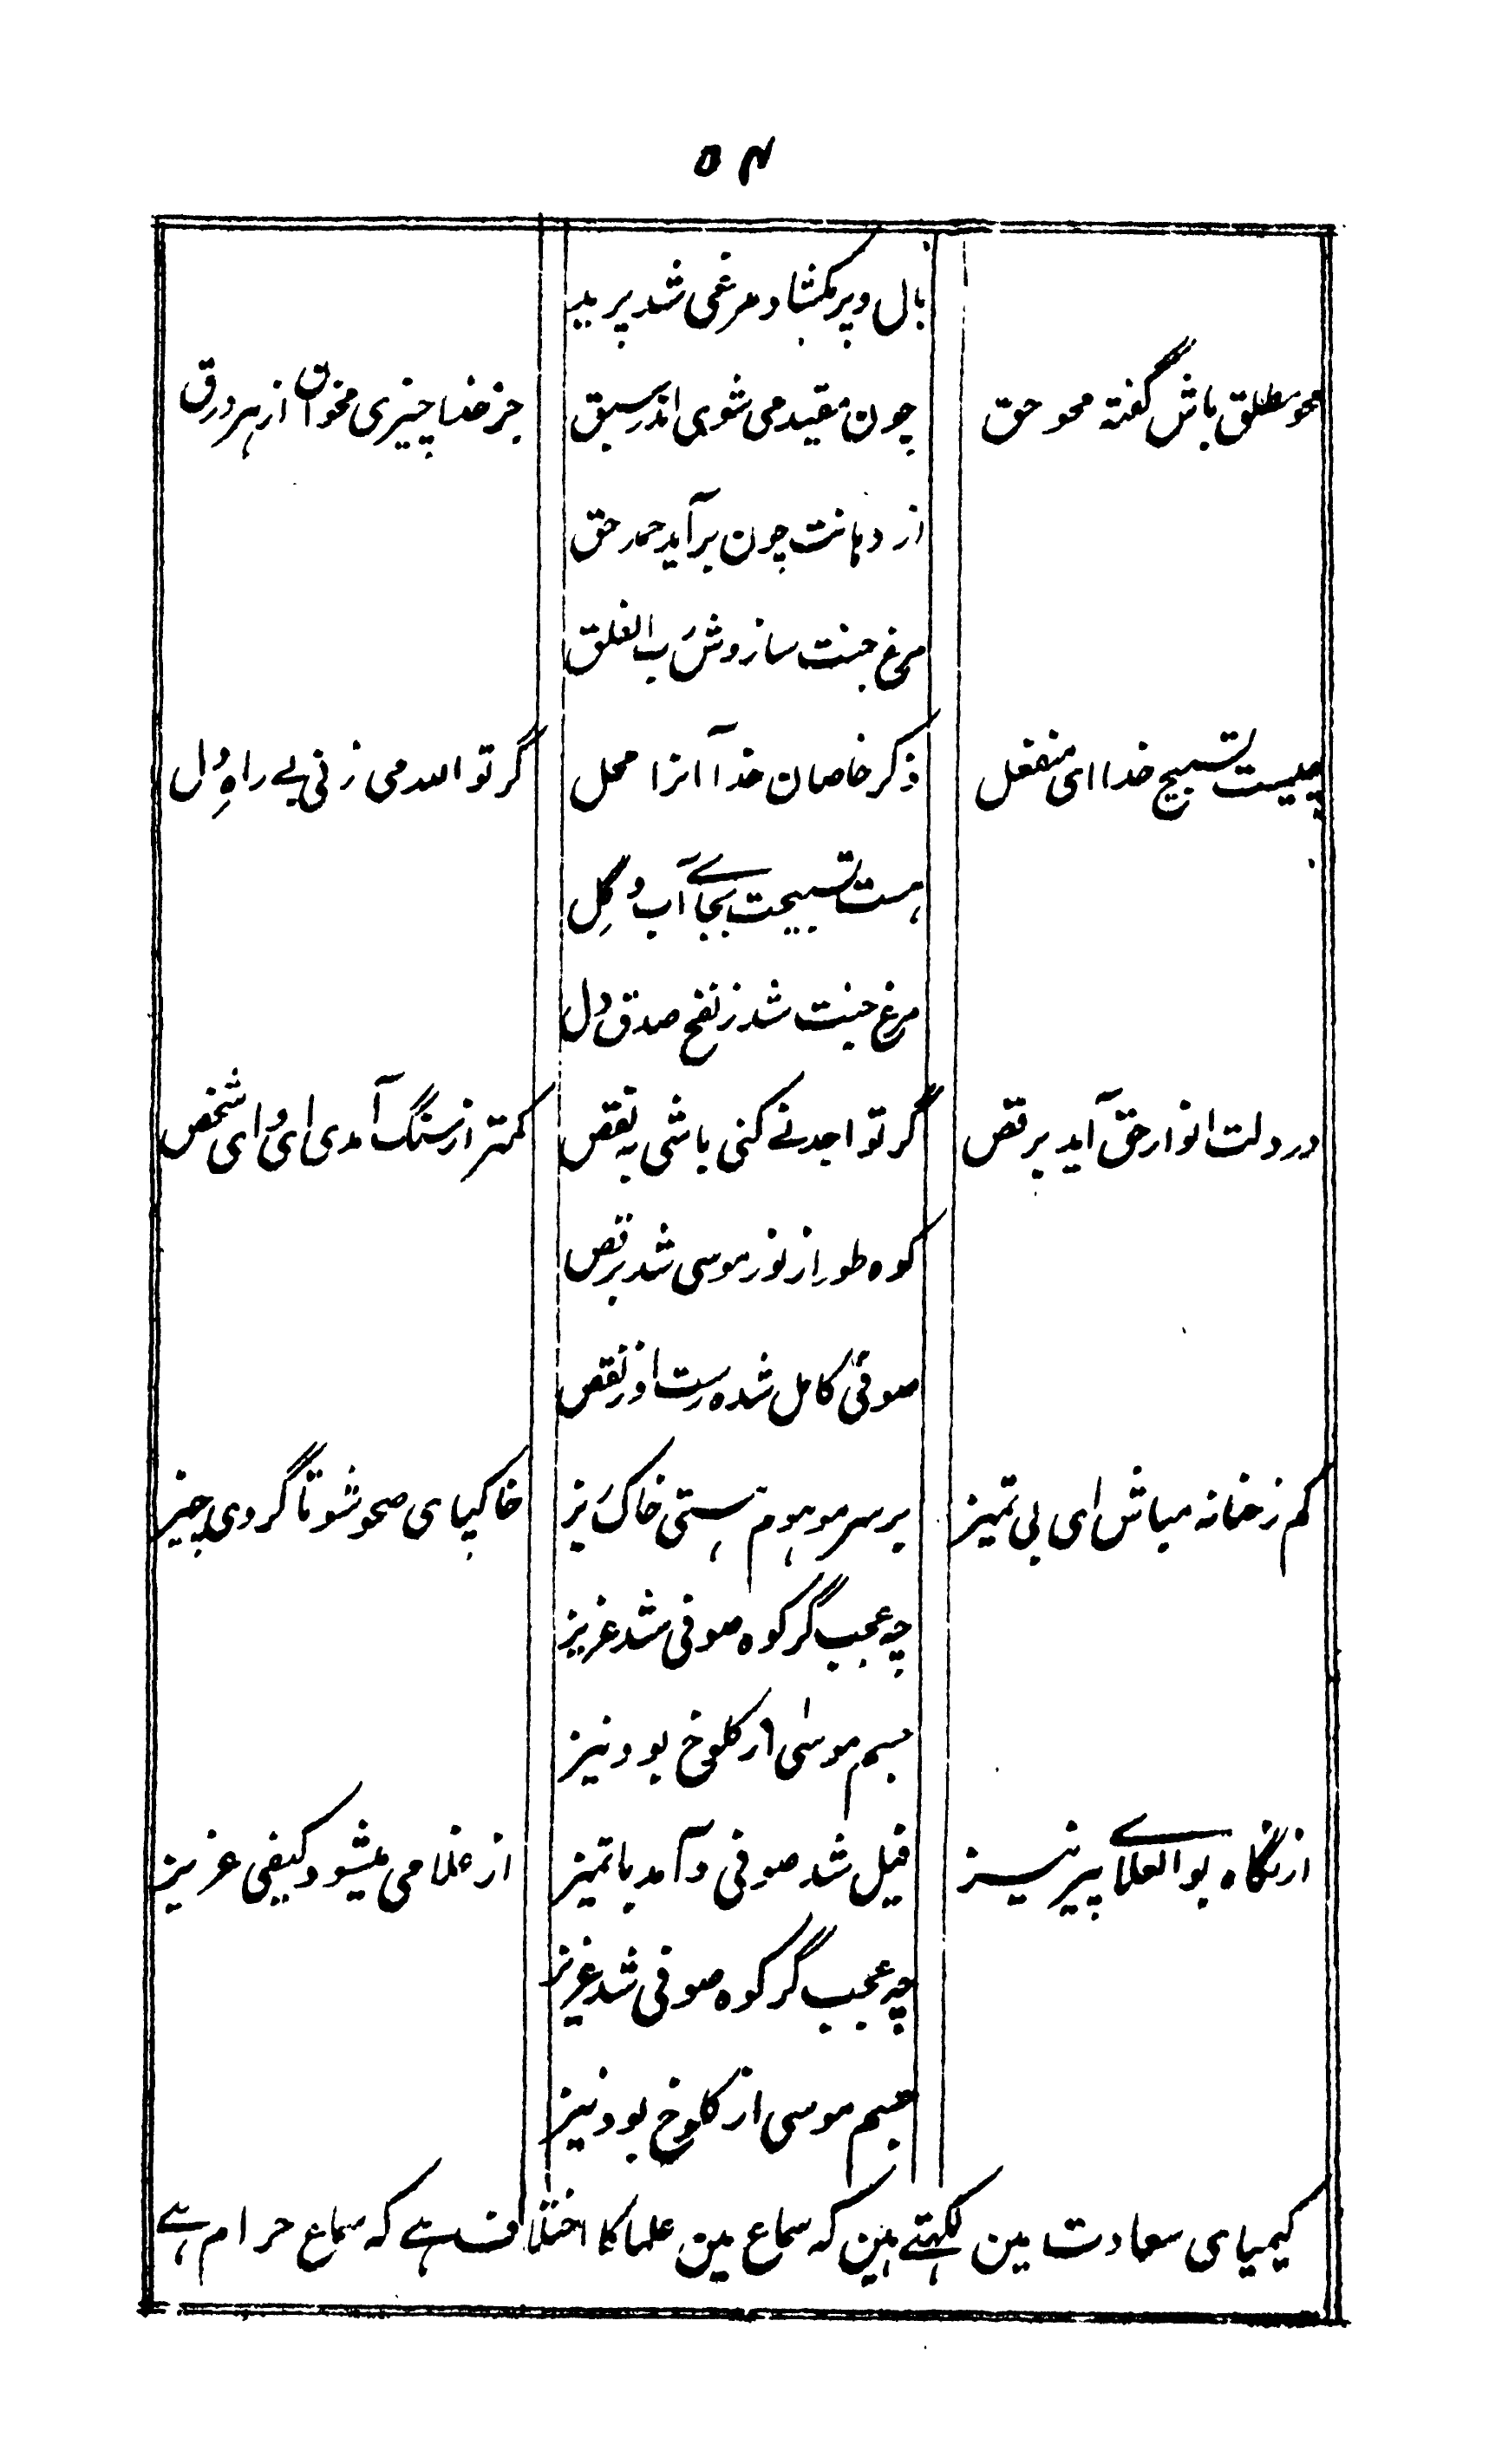 ۵۴
بال و پر بکشاد مرغی شد پرید
محو مطلق باش گفته محو حق چون مقید می شوی اندر سبق جز خدا چیزی مخوان از هر ورق
از دهانت چون برآید حمد حق
مرغ جنت سازدش رب الفلق
چیست تسبیح خدا ای منفعل ذکر خاصان خدا آنرا محل گر تو الله می زنی بے راہِ دل
هست تسبیحت بجاے آب و گِل
مرغ جنت شد ز نفخ صدق دل
در دلت انوار حق آید برقص گر تو اجدنے کنی باشی به نقص کمتر از سنگ آمدی ای وای شخص
کوه طور از نور موسی شد برقص
صوفیٔ کامل شد و رست او ز نقص
کم ز خانه مباش ای بی تمیز بر سر موهوم هستی خاک ریز خاکپای محو شو تا گردی چیز
چه عجب گر کوه صوفی شد عزیز
جسم موسیٰ از کلوخ بود نیز
از نگاه بوالعلاے پیر نیز فیل شد صوفی و آمد با تمیز از غلامی میشود کیفی عزیز
چه عجب گر کوه صوفی شد عزیز
جسم موسی از کلوخ بود نیز
کیمیای سعادت مین لکهتے ہین کہ سماع مین علما کا اختلاف ہے کہ سماع حرام ہے